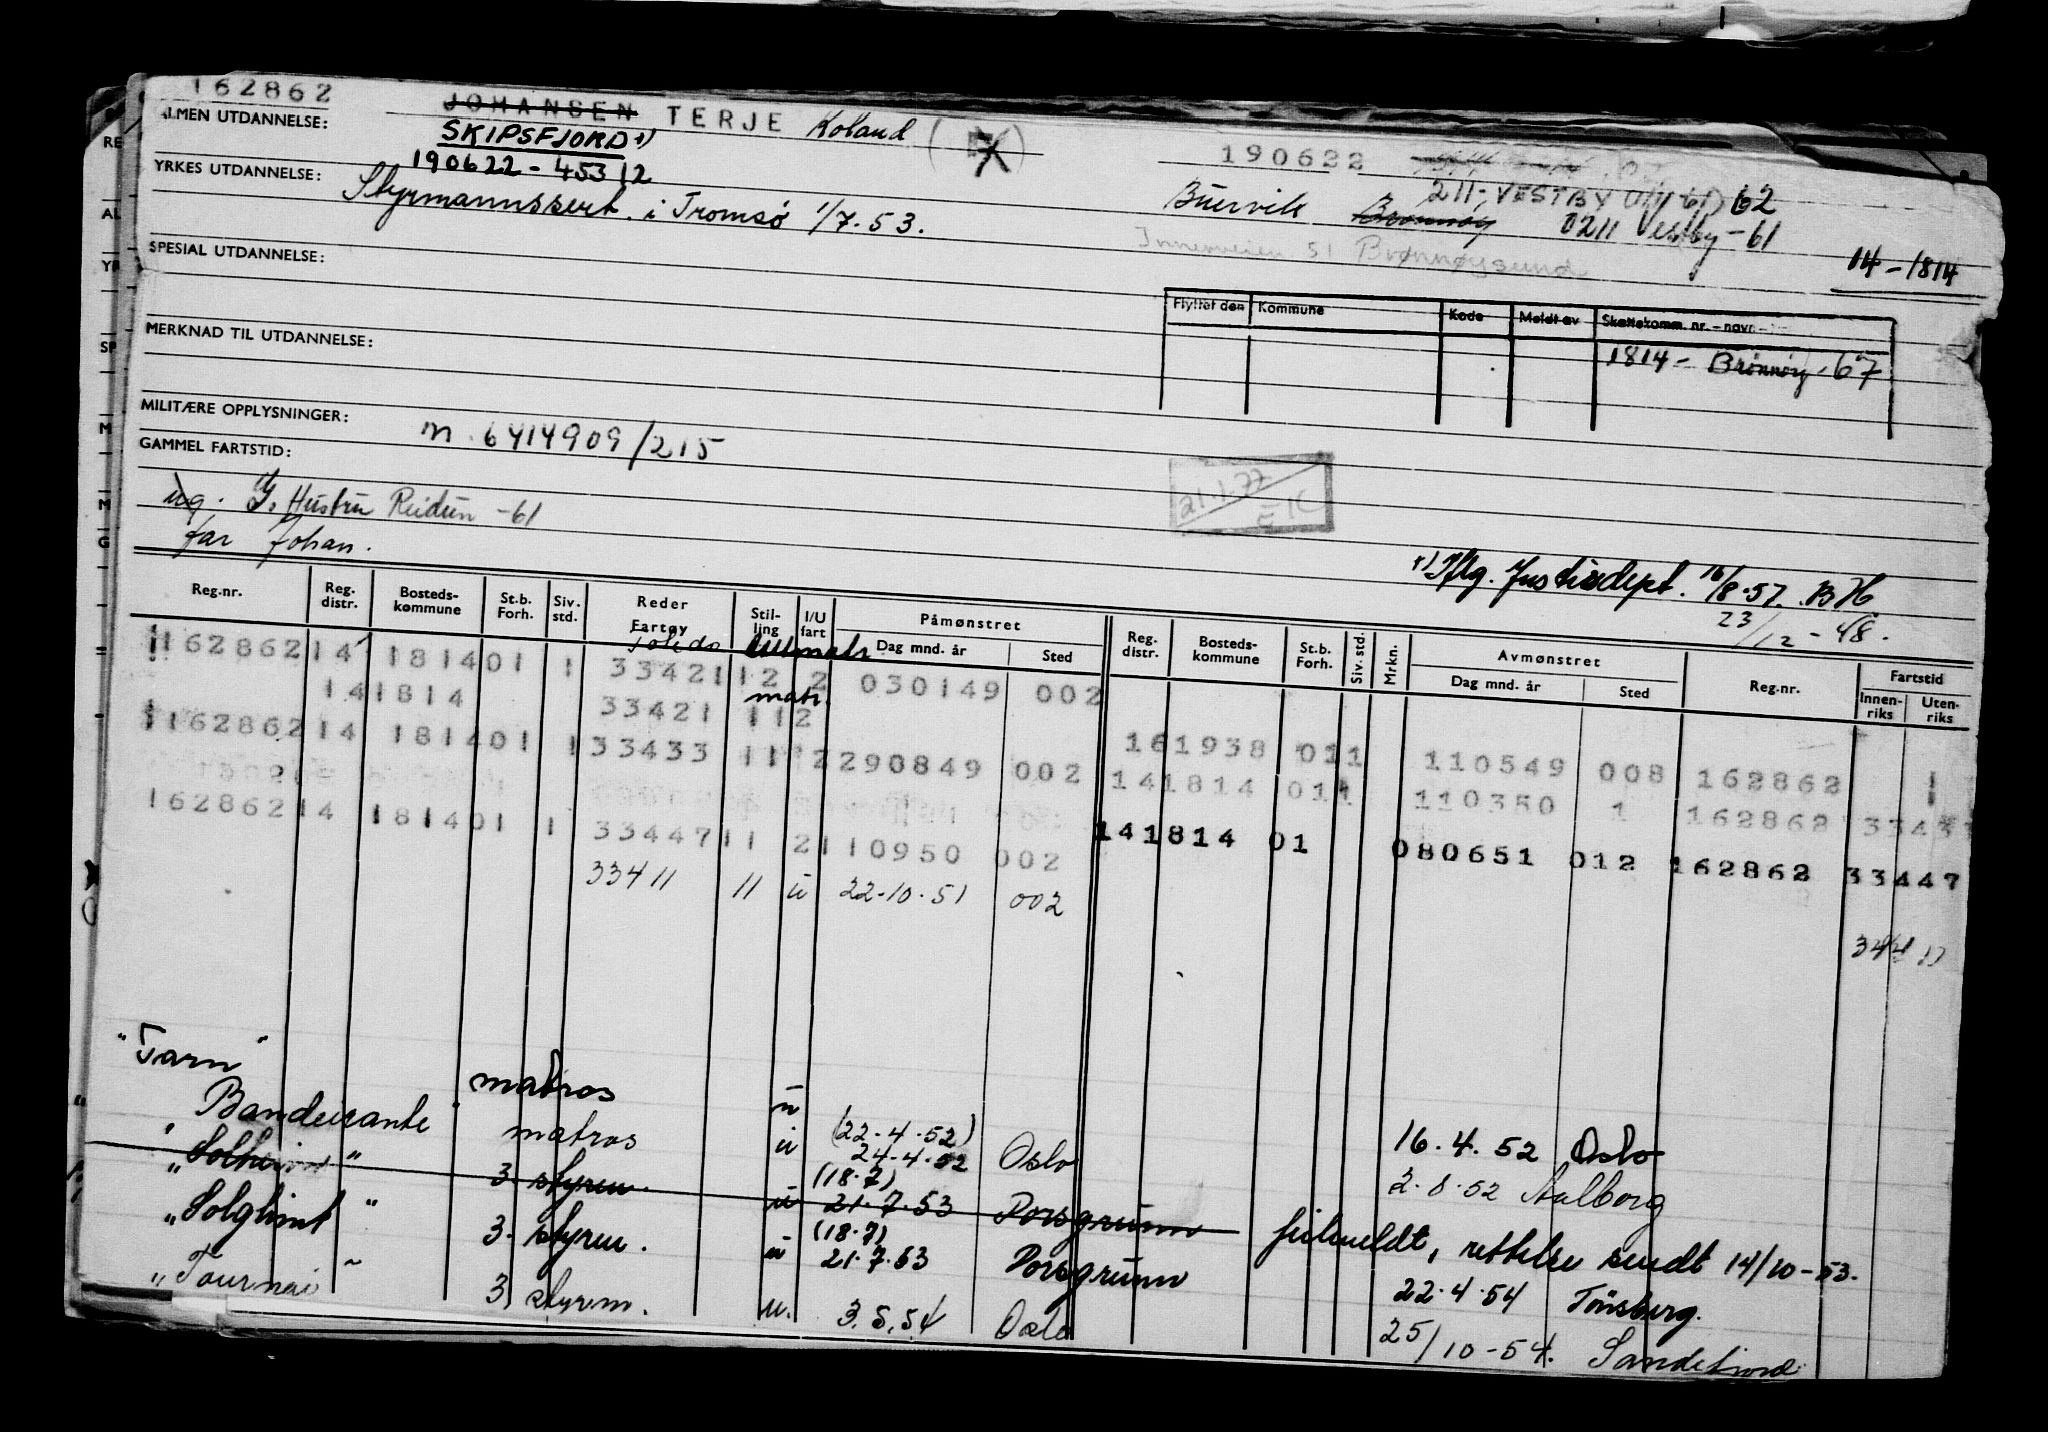 162862
JOHANSEN TERJE Roland
ALMEN UTDANNELSE:
SKIPSFJORD x)
190622 - 45312
190622
211, VESTBY (1/1 61) 62
YRKES UTDANNELSE: Styrmannssert. i Tromsø 1/7.53.
Buervik Brønnøy 0211 Vestby -61
Innerveien 51 Brønnøysund
14 - 1814
SPESIAL UTDANNELSE:
Flyttet den Kommune Kode Meldt av Skattekomm. nr. - navn
1814 - Brønnøy - 67
MERKNAD TIL UTDANNELSE:
MILITÆRE OPPLYSNINGER: m. 6414909/215
GAMMEL FARTSTID:
21.1.77
EK
ug. G. Hustru Reidun -61
far Johan.
x) Iflg. Justisdept. 16/8.57. BH
23/12 - 48.
Reg.nr. Reg. distr. Bosteds-kommune St.b. Forh. Siv. std. Reder Fartøy Stil-ling I/U fart Påmønstret Dag mnd. år Sted Reg. distr. Bosteds-kommune St.b. Forh. Siv. std. Mrkn. Avmønstret Dag mnd. år Sted Reg.nr. Fartstid Innen-riks Uten-riks
Toledo
162862 14 1814 01 1 33421 12 2 030149 002
14 1814 33421 matr. 11 2
162862 14 1814 01 1 33433 11 2 290849 002 16 1938 01 1 110549 008 162862 1
14 1814 01 1 110350 1 162862
162862 14 1814 01 1 33447 11 2 110950 002 14 1814 01 080651 012 162862 33447
33411 11 u 22-10.51 002
"Tarn" matros u 16.4.52 Oslo
" Bandeirante " matros u (22.4.52) 24-4.52 Oslo 2.8.52 Aalborg
" 3. styrm. u (18.7) 21.7.53 Porsgrunn feilmeldt, rettelse sendt 14/10-53.
" Solglimt " 3. styrm. u (18.7) 21.7.53 Porsgrunn 22.4.54 Tønsberg.
" Tournai " 3. styrm. u. 3.5.54 Oslo 25/10-54. Sandefjord